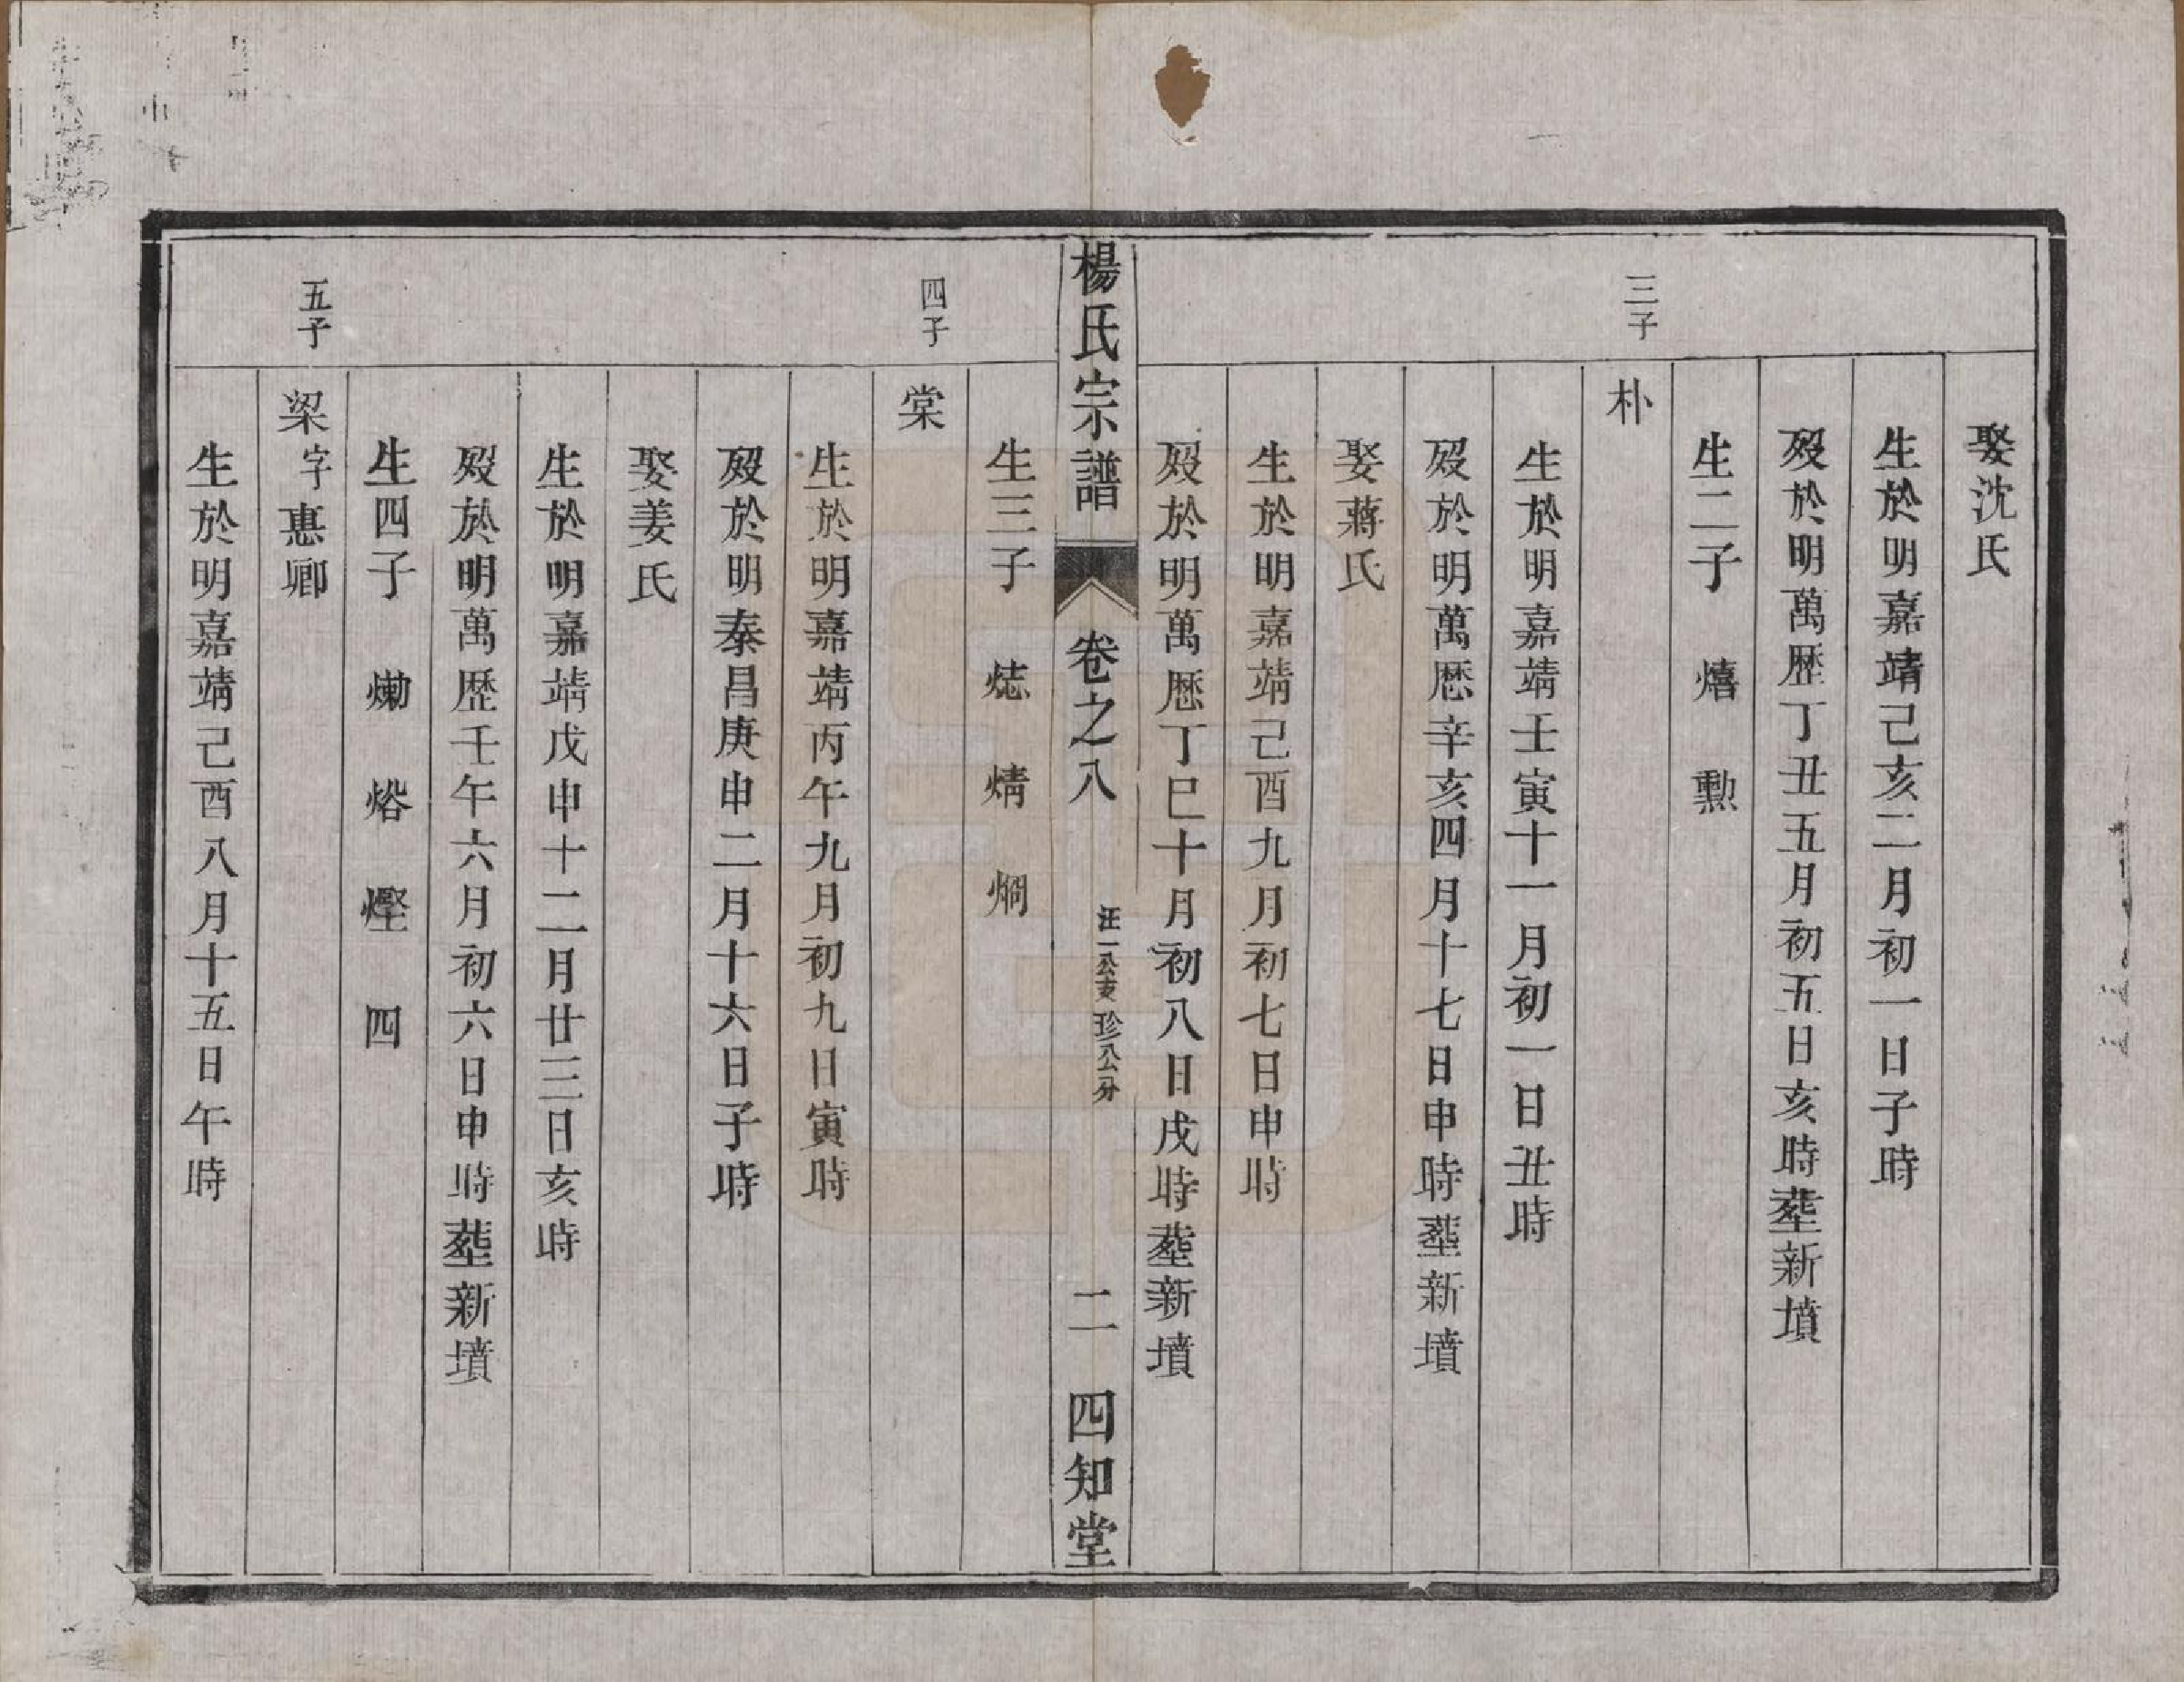 娶沈氏
生於明嘉靖己亥二月初一日子時
歿於明萬歷丁丑五月初五日亥時塟新墳
生二子　熺　勲
三子
朴
生於明嘉靖壬寅十一月初一日丑時
歿於明萬歷辛亥四月十七日申時塟新墳
娶蔣氏
生於明嘉靖己酉九月初七日申時
歿於明萬歷丁巳十月初八日戌時塟新墳
楊氏宗譜　卷之八　汪一公支珍公分　二　四知堂
生三子　焧　焨　燗
四子
棠
生於明嘉靖丙午九月初九日寅時
歿於明泰昌庚申二月十六日子時
娶姜氏
生於明嘉靖戊申十二月廿三日亥時
歿於明萬歷壬午六月初六日申時塟新墳
生四子　㷲　焀　熞　四
五子
梁字惠卿
生於明嘉靖己酉八月十五日午時